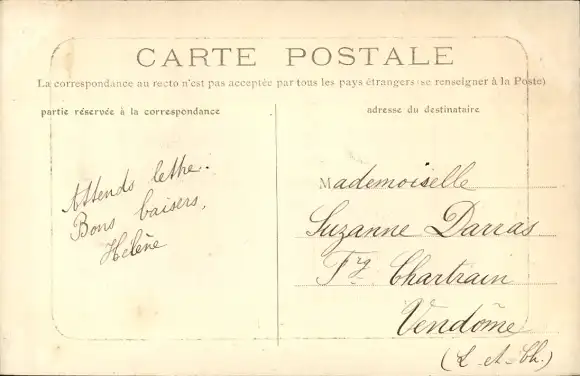 CARTE POSTALE
La correspondance au recto n'est pas acceptée par tous les pays étrangers (se renseigner à la Poste)
partie réservée à la correspondance
Attends lettre.
Bons baisers,
Hélène
adresse du destinataire
Mademoiselle
Suzanne Darras
Fg. Chartrain
Vendôme
(L-et-Ch.)